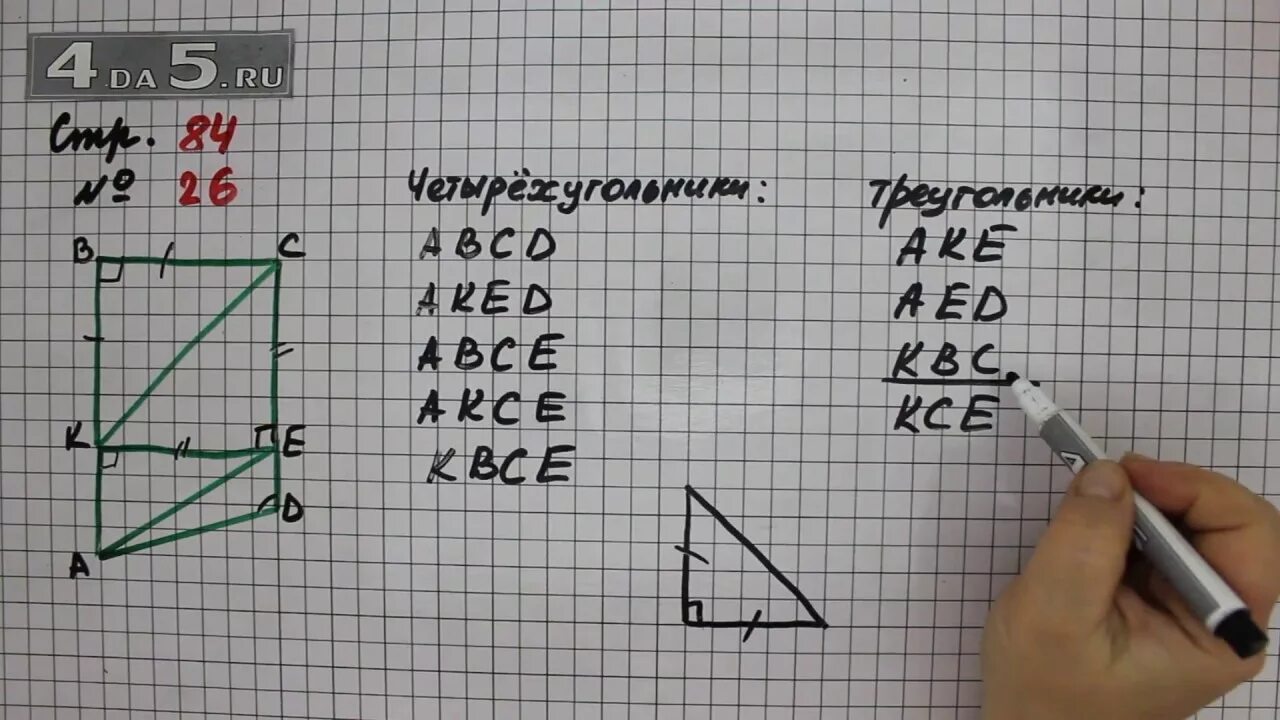 4DA5.RU
Стр. 84
№ 26
Четырёхугольники:
ABCD
AKED
ABCE
AKCE
KBCE
Треугольники:
AKE
AED
KBC
KCE
B
C
K
E
D
A